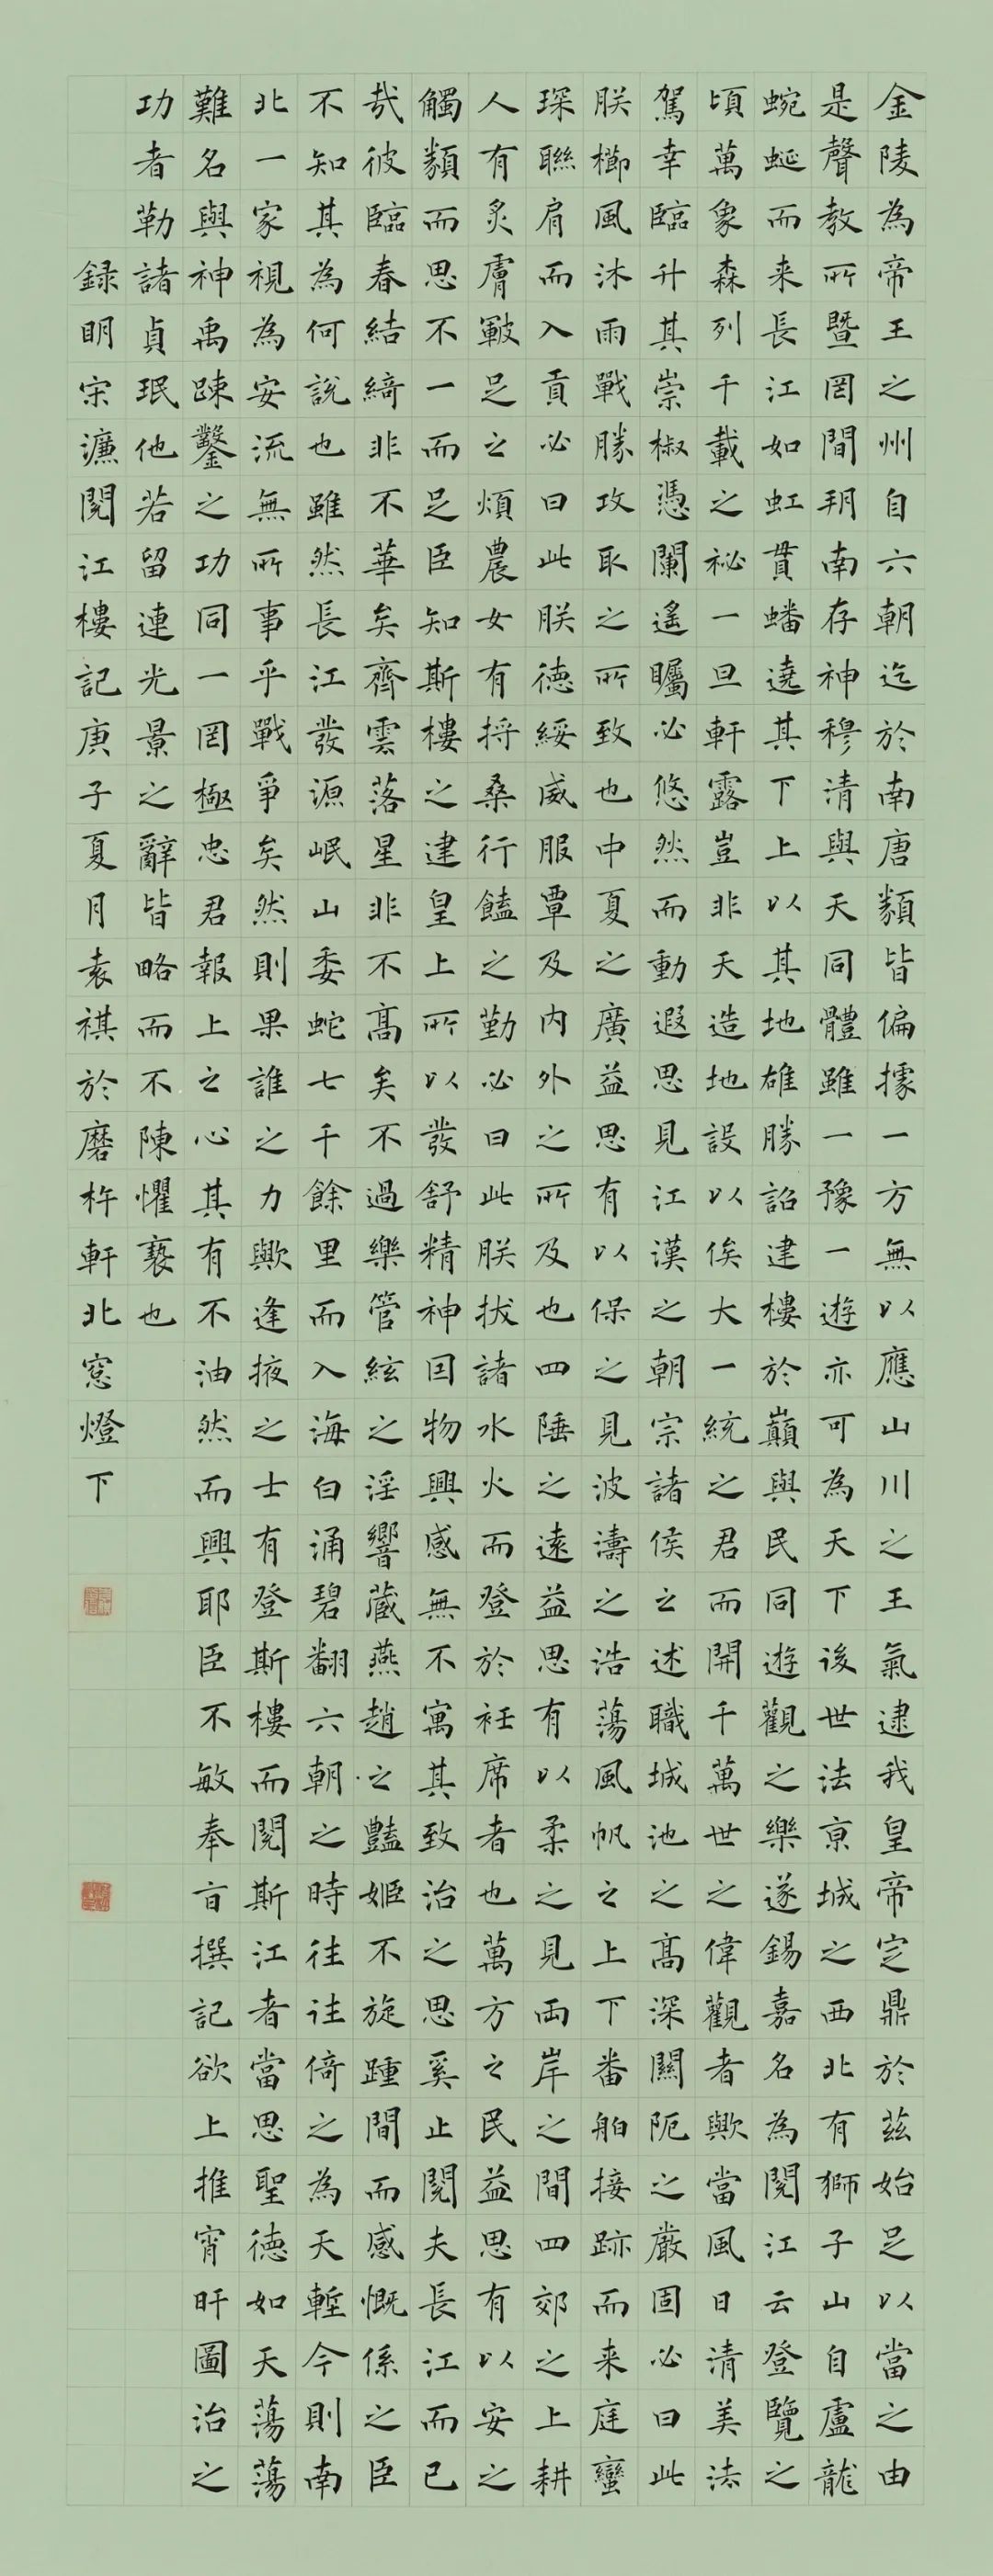 金陵為帝王之州自六朝迄於南唐類皆偏據一方無以應山川之王氣逮我皇帝定鼎於茲始足以當之由
是聲教所暨罔間朔南存神穆清與天同體雖一豫一遊亦可為天下後世法京城之西北有獅子山自盧龍
蜿蜒而来長江如虹貫蟠遶其下上以其地雄勝詔建樓於巔與民同遊觀之樂遂錫嘉名為閱江云登覽之
頃萬象森列千載之祕一旦軒露豈非天造地設以俟大一統之君而開千萬世之偉觀者歟當風日清美法
駕幸臨升其崇椒憑闌遙矚必悠然而動遐思見江漢之朝宗諸侯之述職城池之高深關阨之嚴固必曰此
朕櫛風沐雨戰勝攻取之所致也中夏之廣益思有以保之見波濤之浩蕩風帆之上下番舶接跡而来庭蠻
琛聯肩而入貢必曰此朕德綏威服覃及内外之所及也四陲之遠益思有以柔之見両岸之間四郊之上耕
人有炙膚皸足之煩農女有捋桑行饁之勤必曰此朕拔諸水火而登於衽席者也萬方之民益思有以安之
觸類而思不一而足臣知斯樓之建皇上所以發舒精神因物興感無不寓其致治之思奚止閱夫長江而已
哉彼臨春結綺非不華矣齊雲落星非不高矣不過樂管絃之淫響藏燕趙之豔姬不旋踵間而感慨係之臣
不知其為何說也雖然長江發源岷山委蛇七千餘里而入海白涌碧翻六朝之時往往倚之為天塹今則南
北一家視為安流無所事乎戰爭矣然則果誰之力歟逢掖之士有登斯樓而閱斯江者當思聖德如天蕩蕩
難名與神禹踈鑿之功同一罔極忠君報上之心其有不油然而興耶臣不敏奉㫖撰記欲上推宵旰圖治之
功者勒諸貞珉他若留連光景之辭皆略而不陳懼褻也
録明宋濂閱江樓記庚子夏月袁祺於磨杵軒北窓燈下